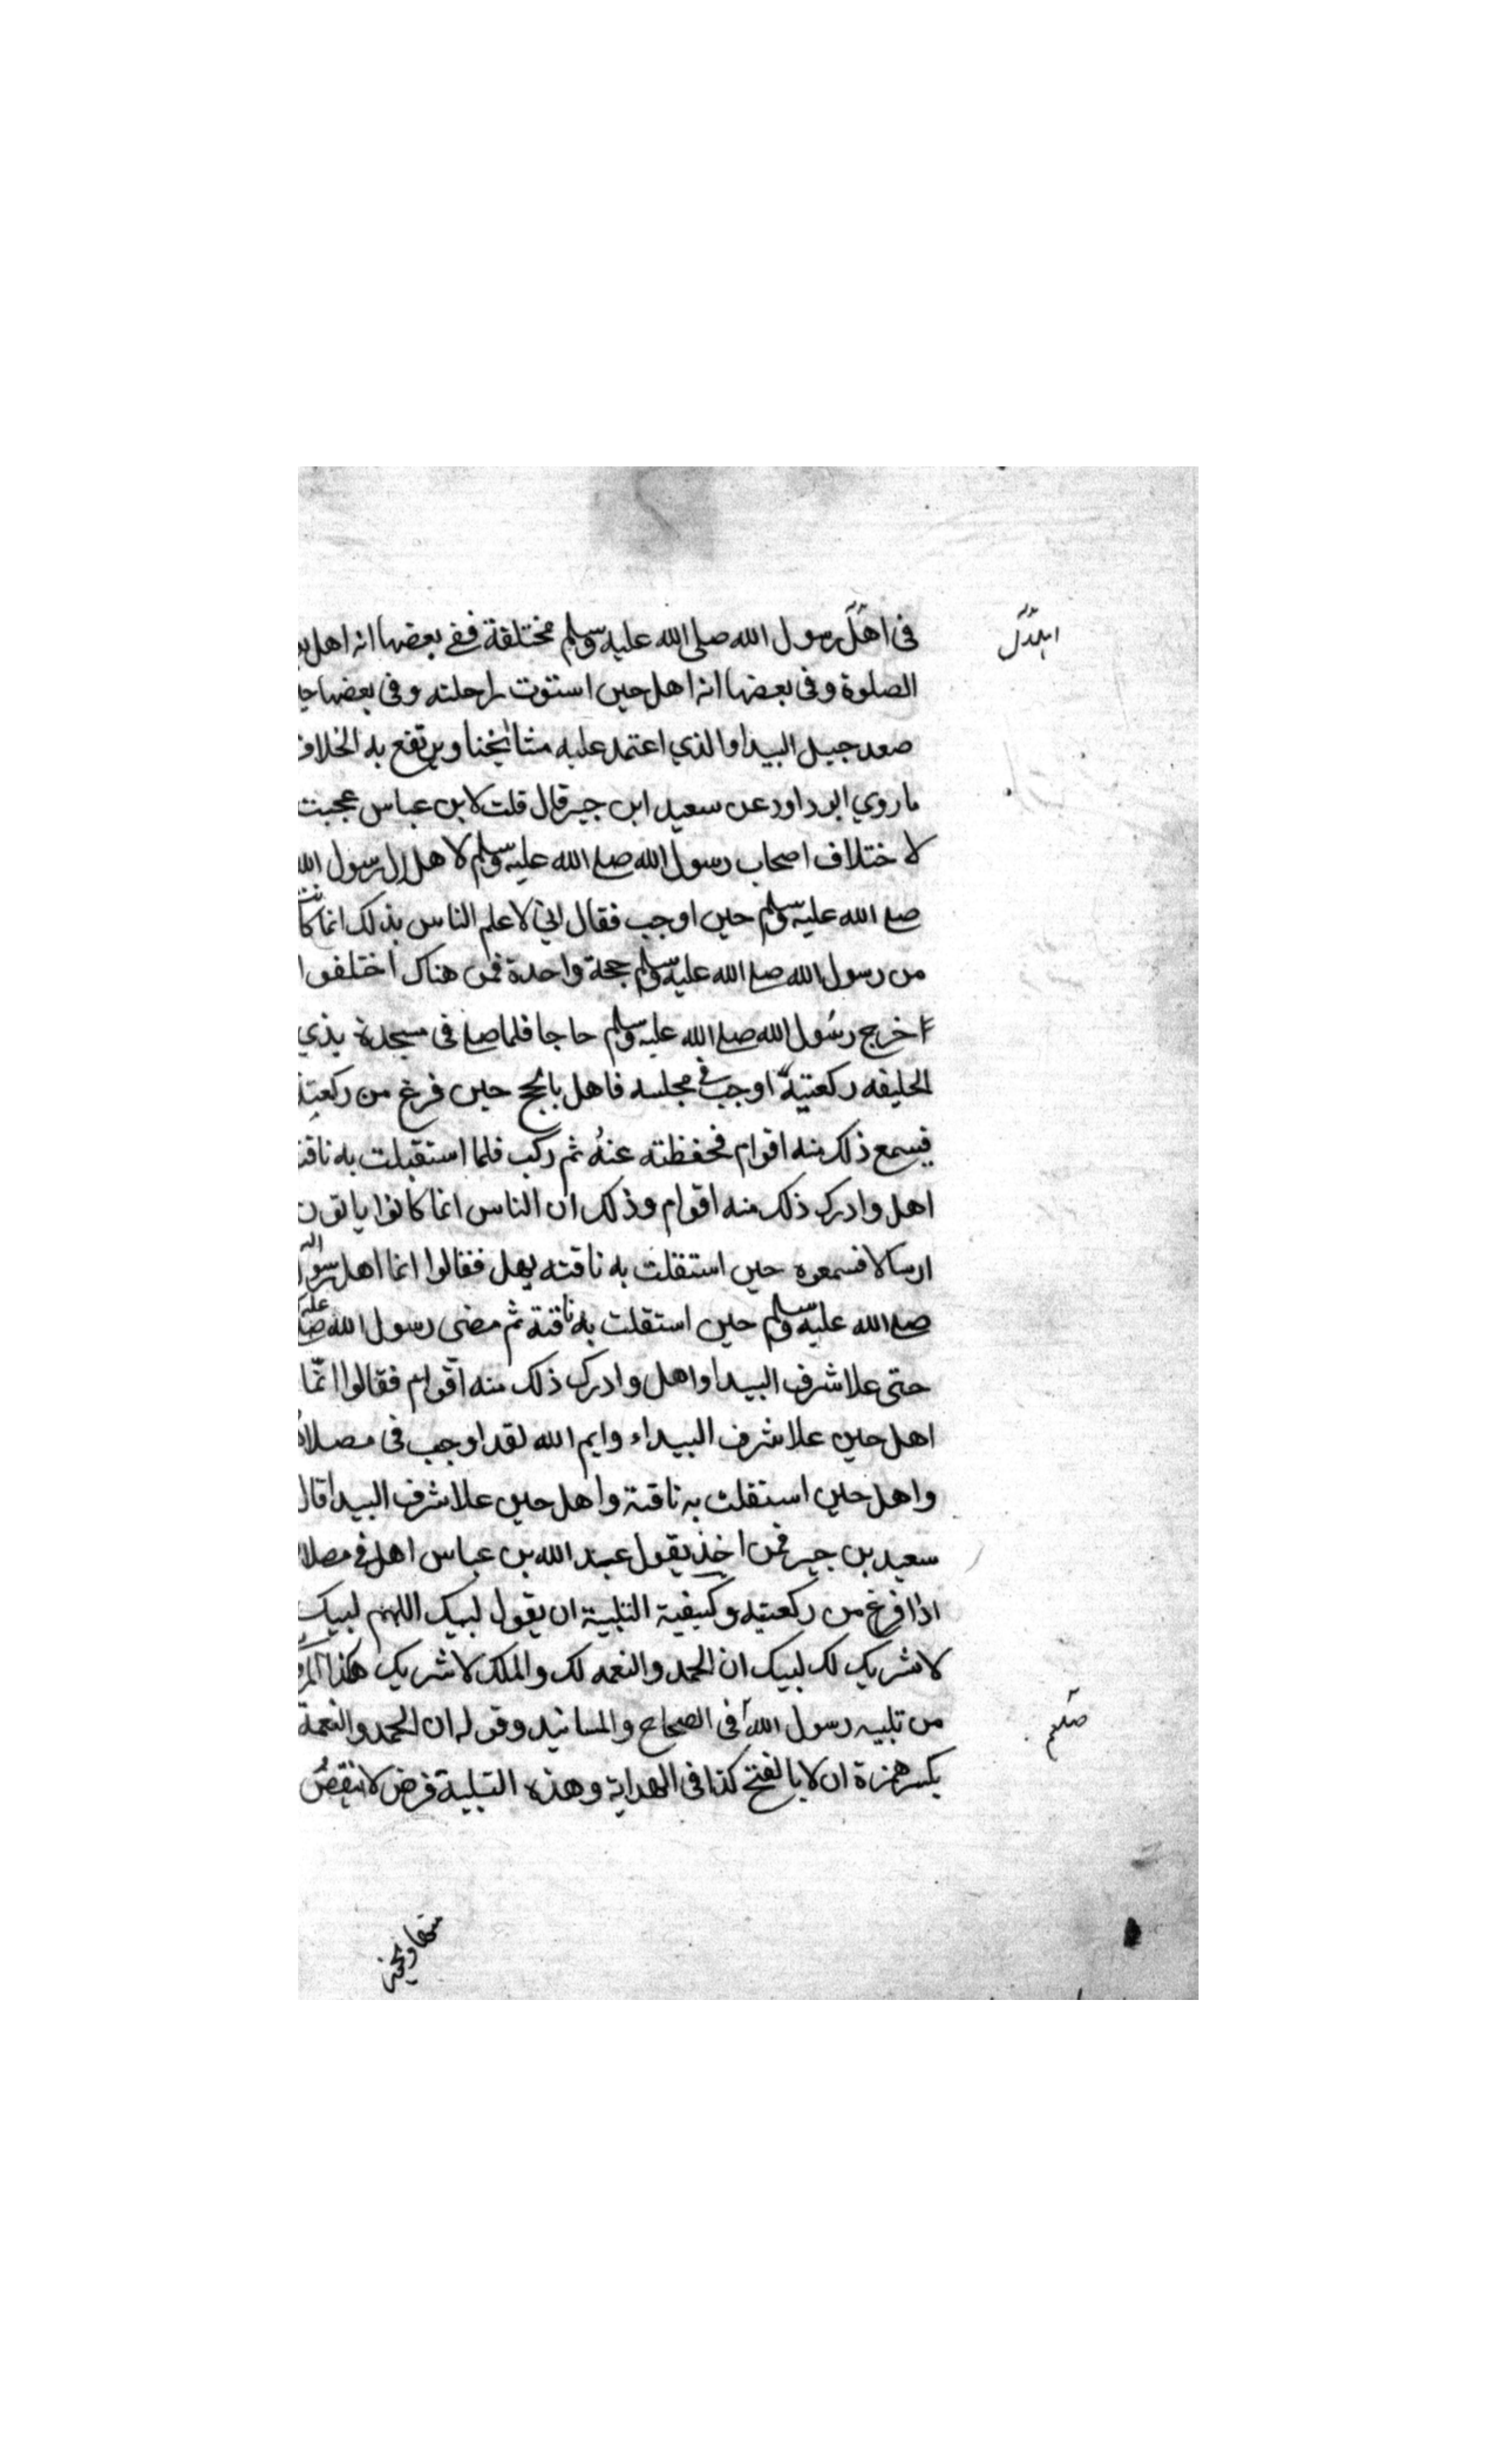 فى اهل رسول الله صلى الله عليه وسلم مختلفة ففى بعضها انه اهل
اهلال
الصلوة وفى بعضها انه اهل حين استوت راحلته وفى بعضها
صعد جبيل البيدا والذي اعتمد عليه مشائخنا ويرتفع به الخلاف
ما روي ابو داود عن سعيد ابن جبير قال قلت لابن عباس عجبت
لاختلاف اصحاب رسول الله صلى الله عليه وسلم لاهلال رسول الله
صلى الله عليه وسلم حين اوجب فقال انى لاعلم الناس بذلك انما كانت
من رسول الله صلى الله عليه وسلم حجة واحدة فمن هناك اختلفوا
اخرج رسول الله صلى الله عليه وسلم حاجا فلما صلى فى مسجدة بذي
الحليفه ركعتيه اوجب فى مجلسه فاهل بالحج حين فرغ من ركعتيه
فيسمع ذلك منه اقوام فحفظته عنه ثم ركب فلما استقبلت به ناقته
اهل وادرك ذلك منه اقوام وذلك ان الناس انما كانوا ياتون
ارسالا فسمعوه حين استقلت به ناقته يهل فقالوا انما اهل رسول الله
صلى الله عليه وسلم حين استقلت به ناقتة ثم مضى رسول الله صلى عليه
حتى علا شرف البيدا واهل وادرك ذلك منه اقوام فقالوا انما
اهل حين علا شرف البيداء وايم الله لقد اوجب فى مصلاه
واهل حين استقلت به ناقتة واهل حين علا شرف البيدا قال
سعيد بن جبير فمن اخذ يقول عبد الله بن عباس اهل فى مصلاه
اذا فرغ من ركعتيه وكيفية التلبية ان يقول لبيك اللهم لبيك
لا شريك لك لبيك ان الحمد والنعمه لك والملك لا شريك هكذا
من تلبيه رسول الله فى الصحاح والمسانيد وقوله ان الحمد والنعمة
صلعم
بكسر همزة ان لا بالفتح كذا فى الهداية وهذه التلبية فرض لا ينقص